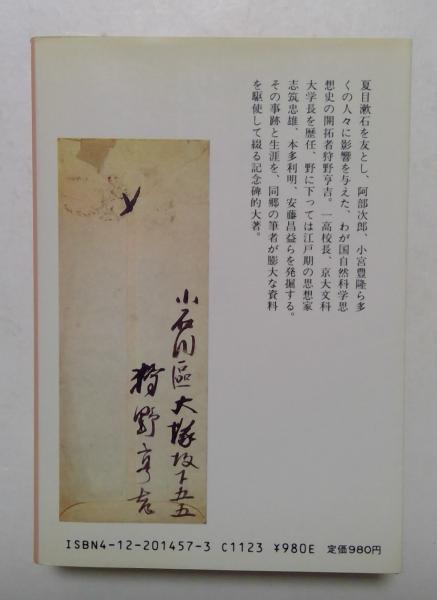 夏目漱石を友とし、阿部次郎、小宮豊隆ら多
くの人々に影響を与えた、わが国自然科学思
想史の開拓者狩野亨吉。一高校長、京大文科
大学長を歴任、野に下っては江戸期の思想家
志筑忠雄、本多利明、安藤昌益らを発掘する。
その事跡と生涯を、同郷の筆者が膨大な資料
を駆使して綴る記念碑的大著。
小石川區大塚坂下五五
狩野亨吉
ISBN4-12-201457-3 C1123 ¥980E 定価980円